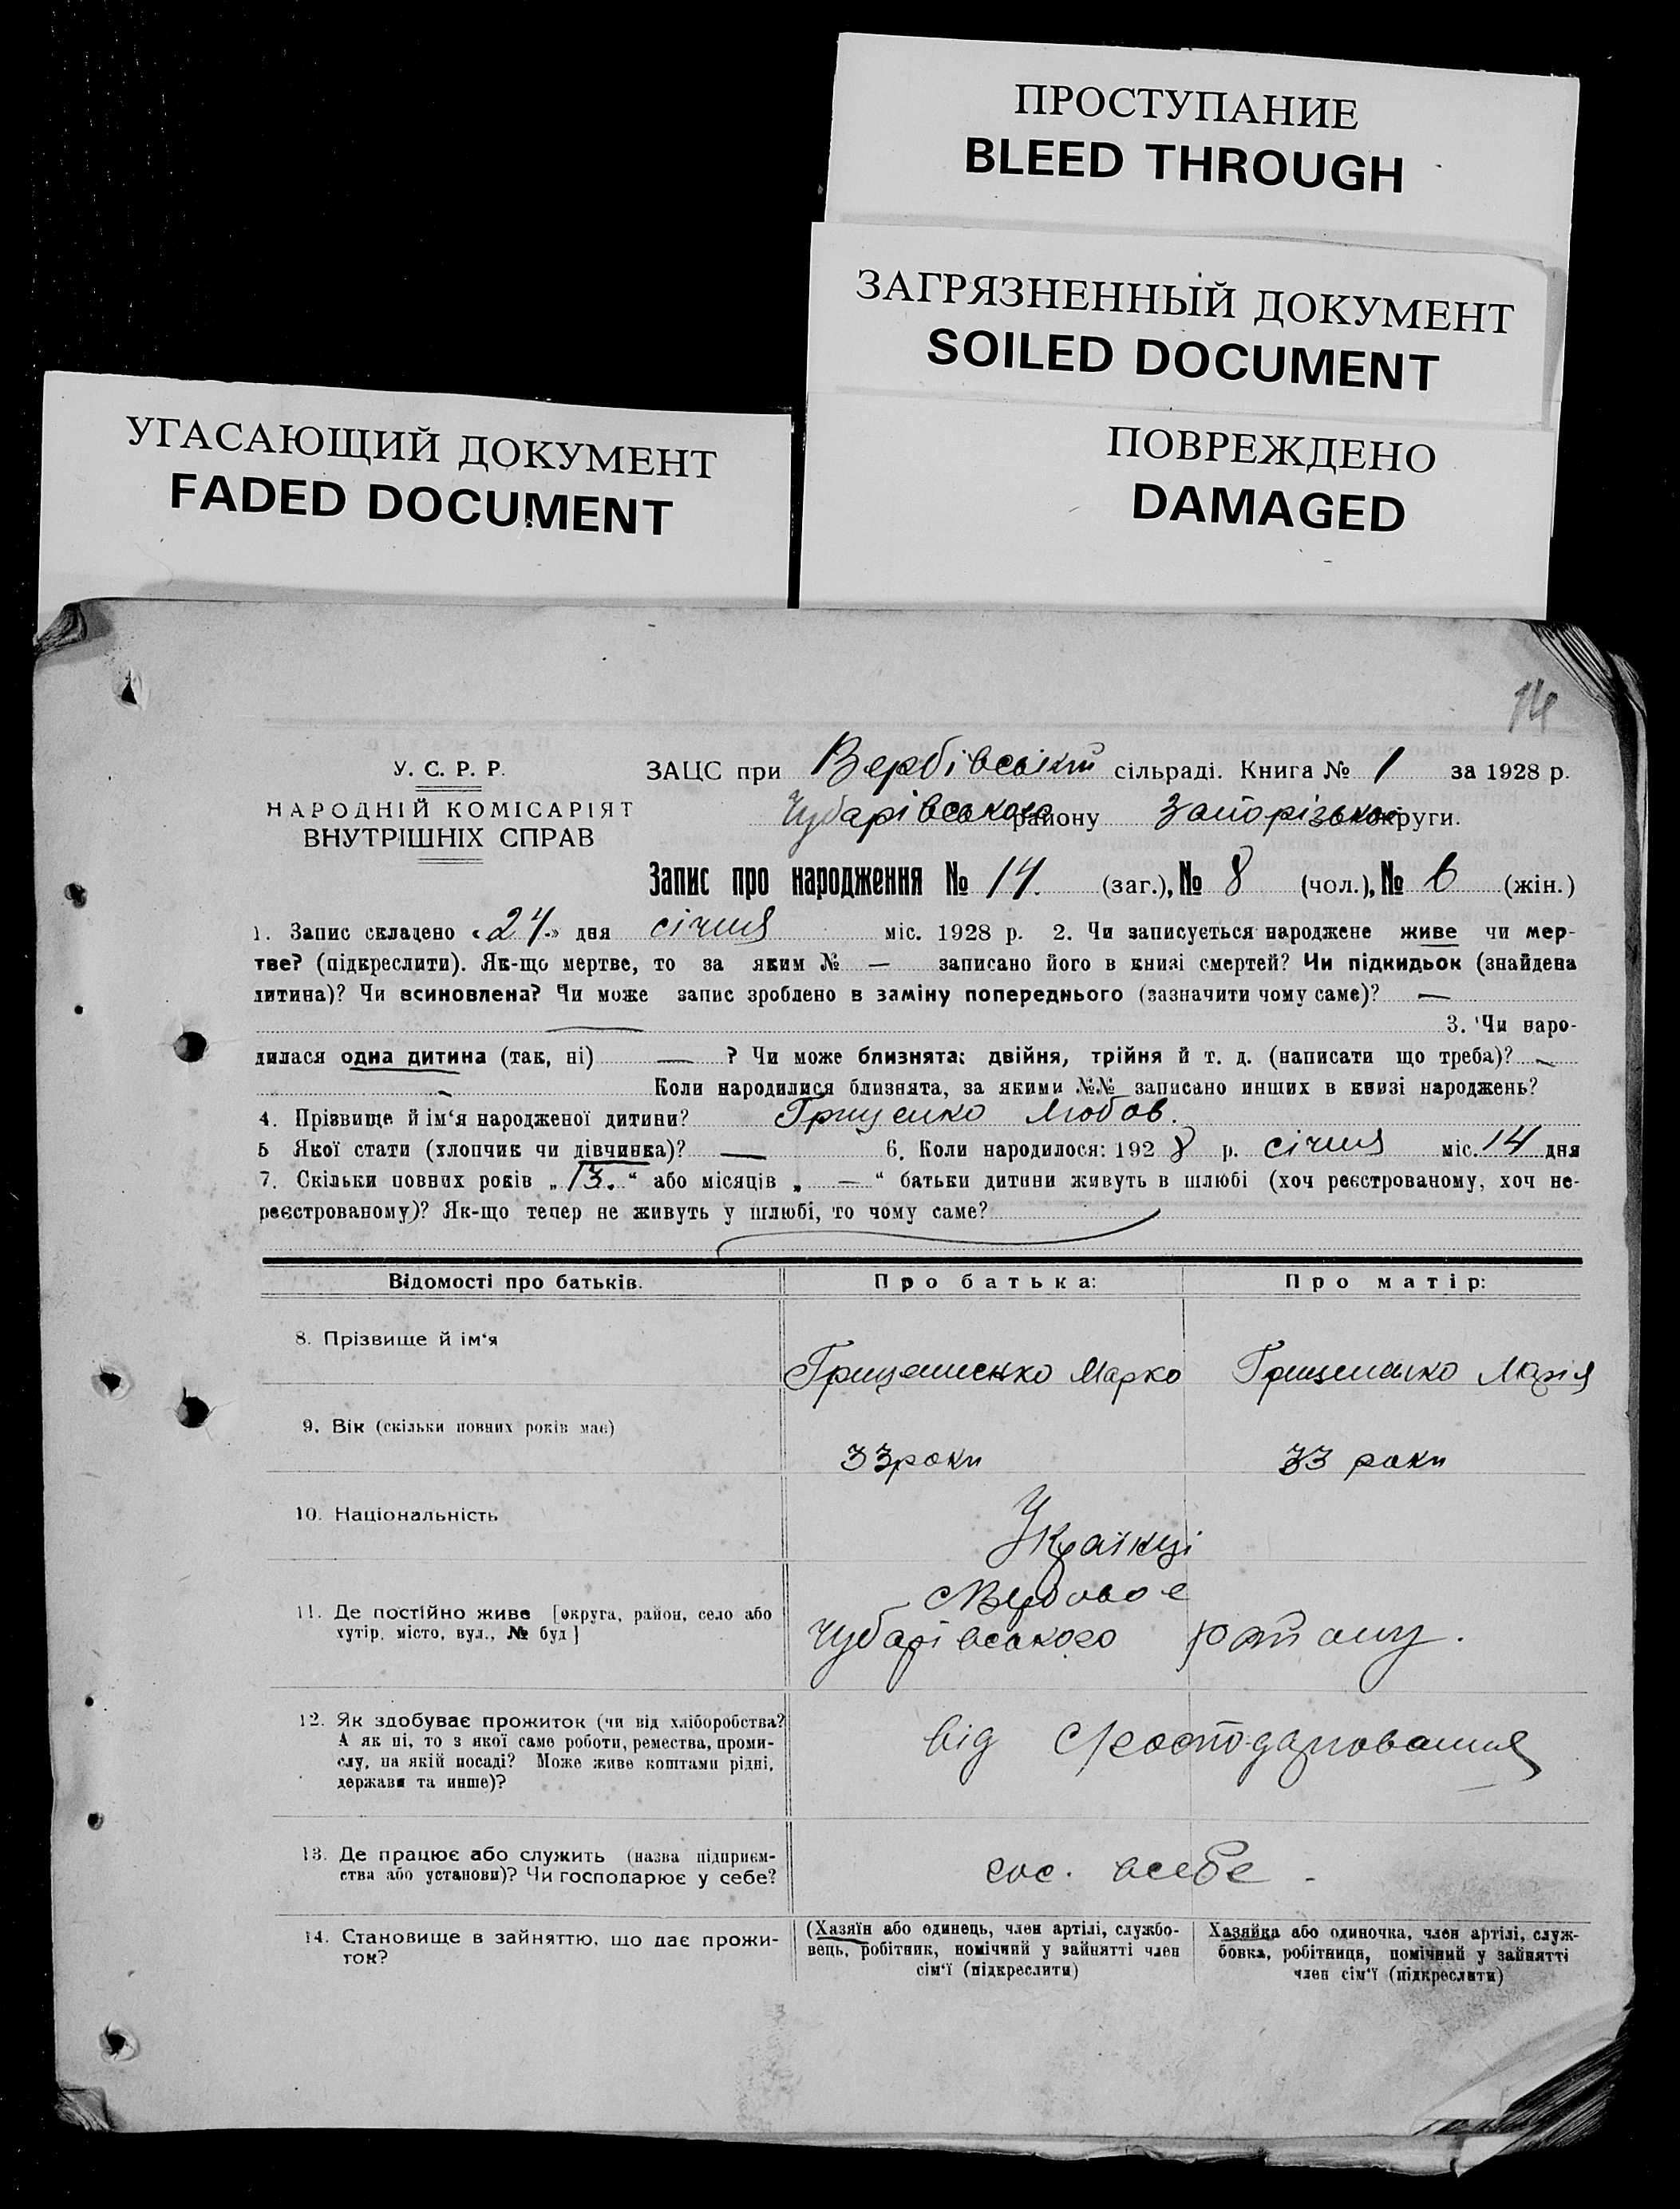 ПРОСТУПАНИЕ
BLEED THROUGH
ЗАГРЯЗНЕННЫЙ ДОКУМЕНТ
SOILED DOCUMENT
УГАСАЮЩИЙ ДОКУМЕНТ
FADED DOCUMENT
ПОВРЕЖДЕНО
DAMAGED
14
У. С. Р. Р.
НАРОДНІЙ КОМІСАРІЯТ
ВНУТРІШНІХ СПРАВ
ЗАЦС при Вербівській сільраді. Книга № 1 за 1928 р.
Чубарівського району Запорізької округи.
Запис про народження № 14. (заг.), № 8 (чол.), № 6 (жін.)
1. Запис складено «24» дня січня міс. 1928 р. 2. Чи записується народжене живе чи мер-
тве? (підкреслити). Як-що мертве, то за яким № — записано його в книзі смертей? Чи підкидьок (знайдена
дитина)? Чи всиновлена? Чи може запис зроблено в заміну попереднього (зазначити чому саме)? —
— 3. Чи наро-
дилася одна дитина (так, ні) — ? Чи може близнята: двійня, трійня й т. д. (написати що треба)? —
— Коли народилися близнята, за якими №№ записано инших в книзі народжень?
4. Прізвище й ім‘я народженої дитини? Грищенко Любов.
5 Якої стати (хлопчик чи дівчинка)? — 6. Коли народилося: 1928 р. січня міс. 14 дня
7. Скільки повних років „13.“ або місяців „ — “ батьки дитини живуть в шлюбі (хоч реєстрованому, хоч не-
реєстрованому)? Як-що тепер не живуть у шлюбі, то чому саме?
Відомості про батьків. Про батька: Про матір:
8. Прізвище й ім‘я
Грищенко Марко Грищенко Марія
9. Вік (скільки повних років має)
33 роки 33 роки
10. Національність
Українці
11. Де постійно живе [округа, район, село або
хутір, місто, вул., № буд]
с Вербове
Чубарівського району.
12. Як здобуває прожиток (чи від хліборобства?
А як ні, то з якої саме роботи, ремества, проми-
слу, на якій посаді? Може живе коштами рідні,
держави та инше)?
від с/господарювання
13. Де працює або служить (назва підприєм-
ства або установи)? Чи господарює у себе?
гос. всебе.
14. Становище в зайняттю, що дає прожи-
ток?
(Хазяїн або одинець, член артілі, службо-
вець, робітник, помічний у зайнятті член
сім‘ї (підкреслити)
Хазяйка або одиночка, член артілі, служ-
бовка, робітниця, помічний у зайнятті
член сім‘ї (підкреслити)